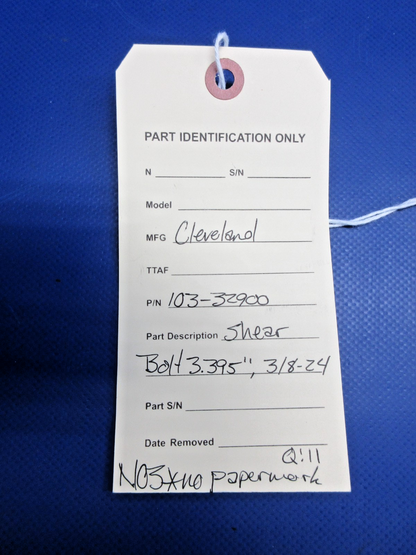 PART IDENTIFICATION ONLY
N S/N
Model
MFG Cleveland
TTAF
P/N 103-32900
Part Description Shear
Bolt 3.395", 3/8-24
Part S/N
Date Removed
Q:11
NO3*no paperwork